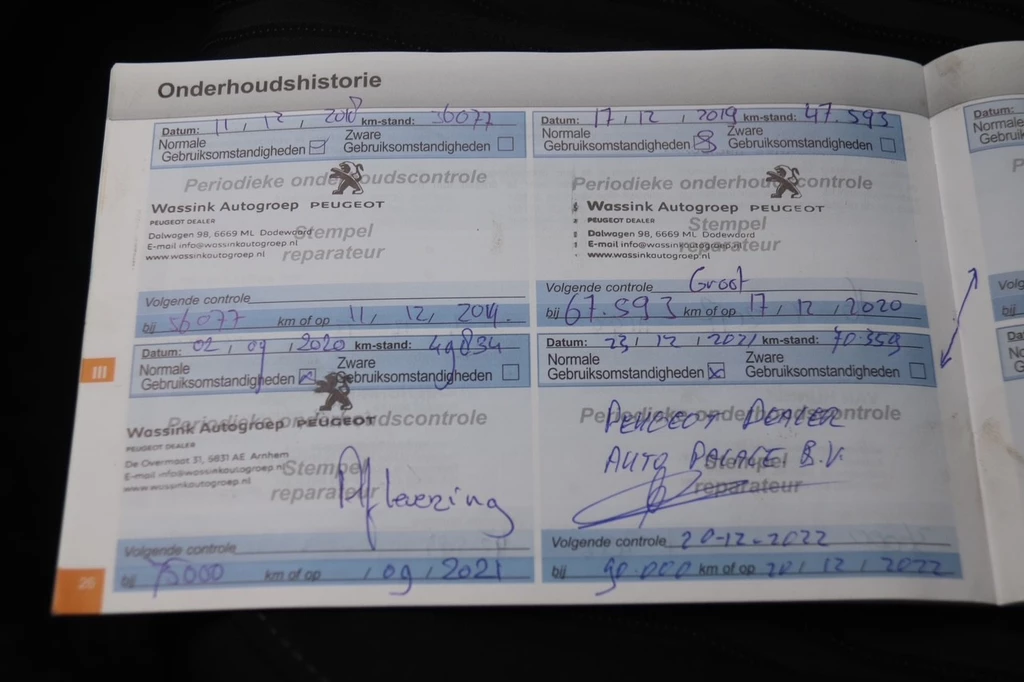 Onderhoudshistorie
Datum: 11, 12, 2018 km-stand: 36077
Normale Gebruiksomstandigheden
Zware Gebruiksomstandigheden
Periodieke onderhoudscontrole
Wassink Autogroep PEUGEOT
PEUGEOT DEALER
Dalwagen 98, 6669 ML Dodewaard
E-mail info@wassinkautogroep.nl
www.wassinkautogroep.nl
Stempel
reparateur
Volgende controle
bij 56077 km of op 11, 12, 2019.
Datum: 17, 12, 2019 km-stand: 47.593
Normale Gebruiksomstandigheden
Zware Gebruiksomstandigheden
Periodieke onderhoudscontrole
Wassink Autogroep PEUGEOT
PEUGEOT DEALER
Dalwagen 98, 6669 ML Dodewaard
E-mail info@wassinkautogroep.nl
www.wassinkautogroep.nl
Stempel
reparateur
Volgende controle Groot
bij 67.593 km of op 17, 12, 2020
III
Datum: 02, 09, 2020 km-stand: 49834
Normale Gebruiksomstandigheden
Zware Gebruiksomstandigheden
Periodieke onderhoudscontrole
Wassink Autogroep PEUGEOT
PEUGEOT DEALER
De Overmaat 31, 6831 AE Arnhem
E-mail info@wassinkautogroep.nl
www.wassinkautogroep.nl
Stempel
reparateur
Aflevering
Volgende controle
bij 75000 km of op , 09, 2021
Datum: 23, 12, 2021 km-stand: 70.359
Normale Gebruiksomstandigheden
Zware Gebruiksomstandigheden
Periodieke onderhoudscontrole
PEUGEOT DEALER
AUTO PALACE B.V.
Stempel
reparateur
Volgende controle 20-12-2022
bij 90.000 km of op 20, 12, 2022
26
Datum:
Normale